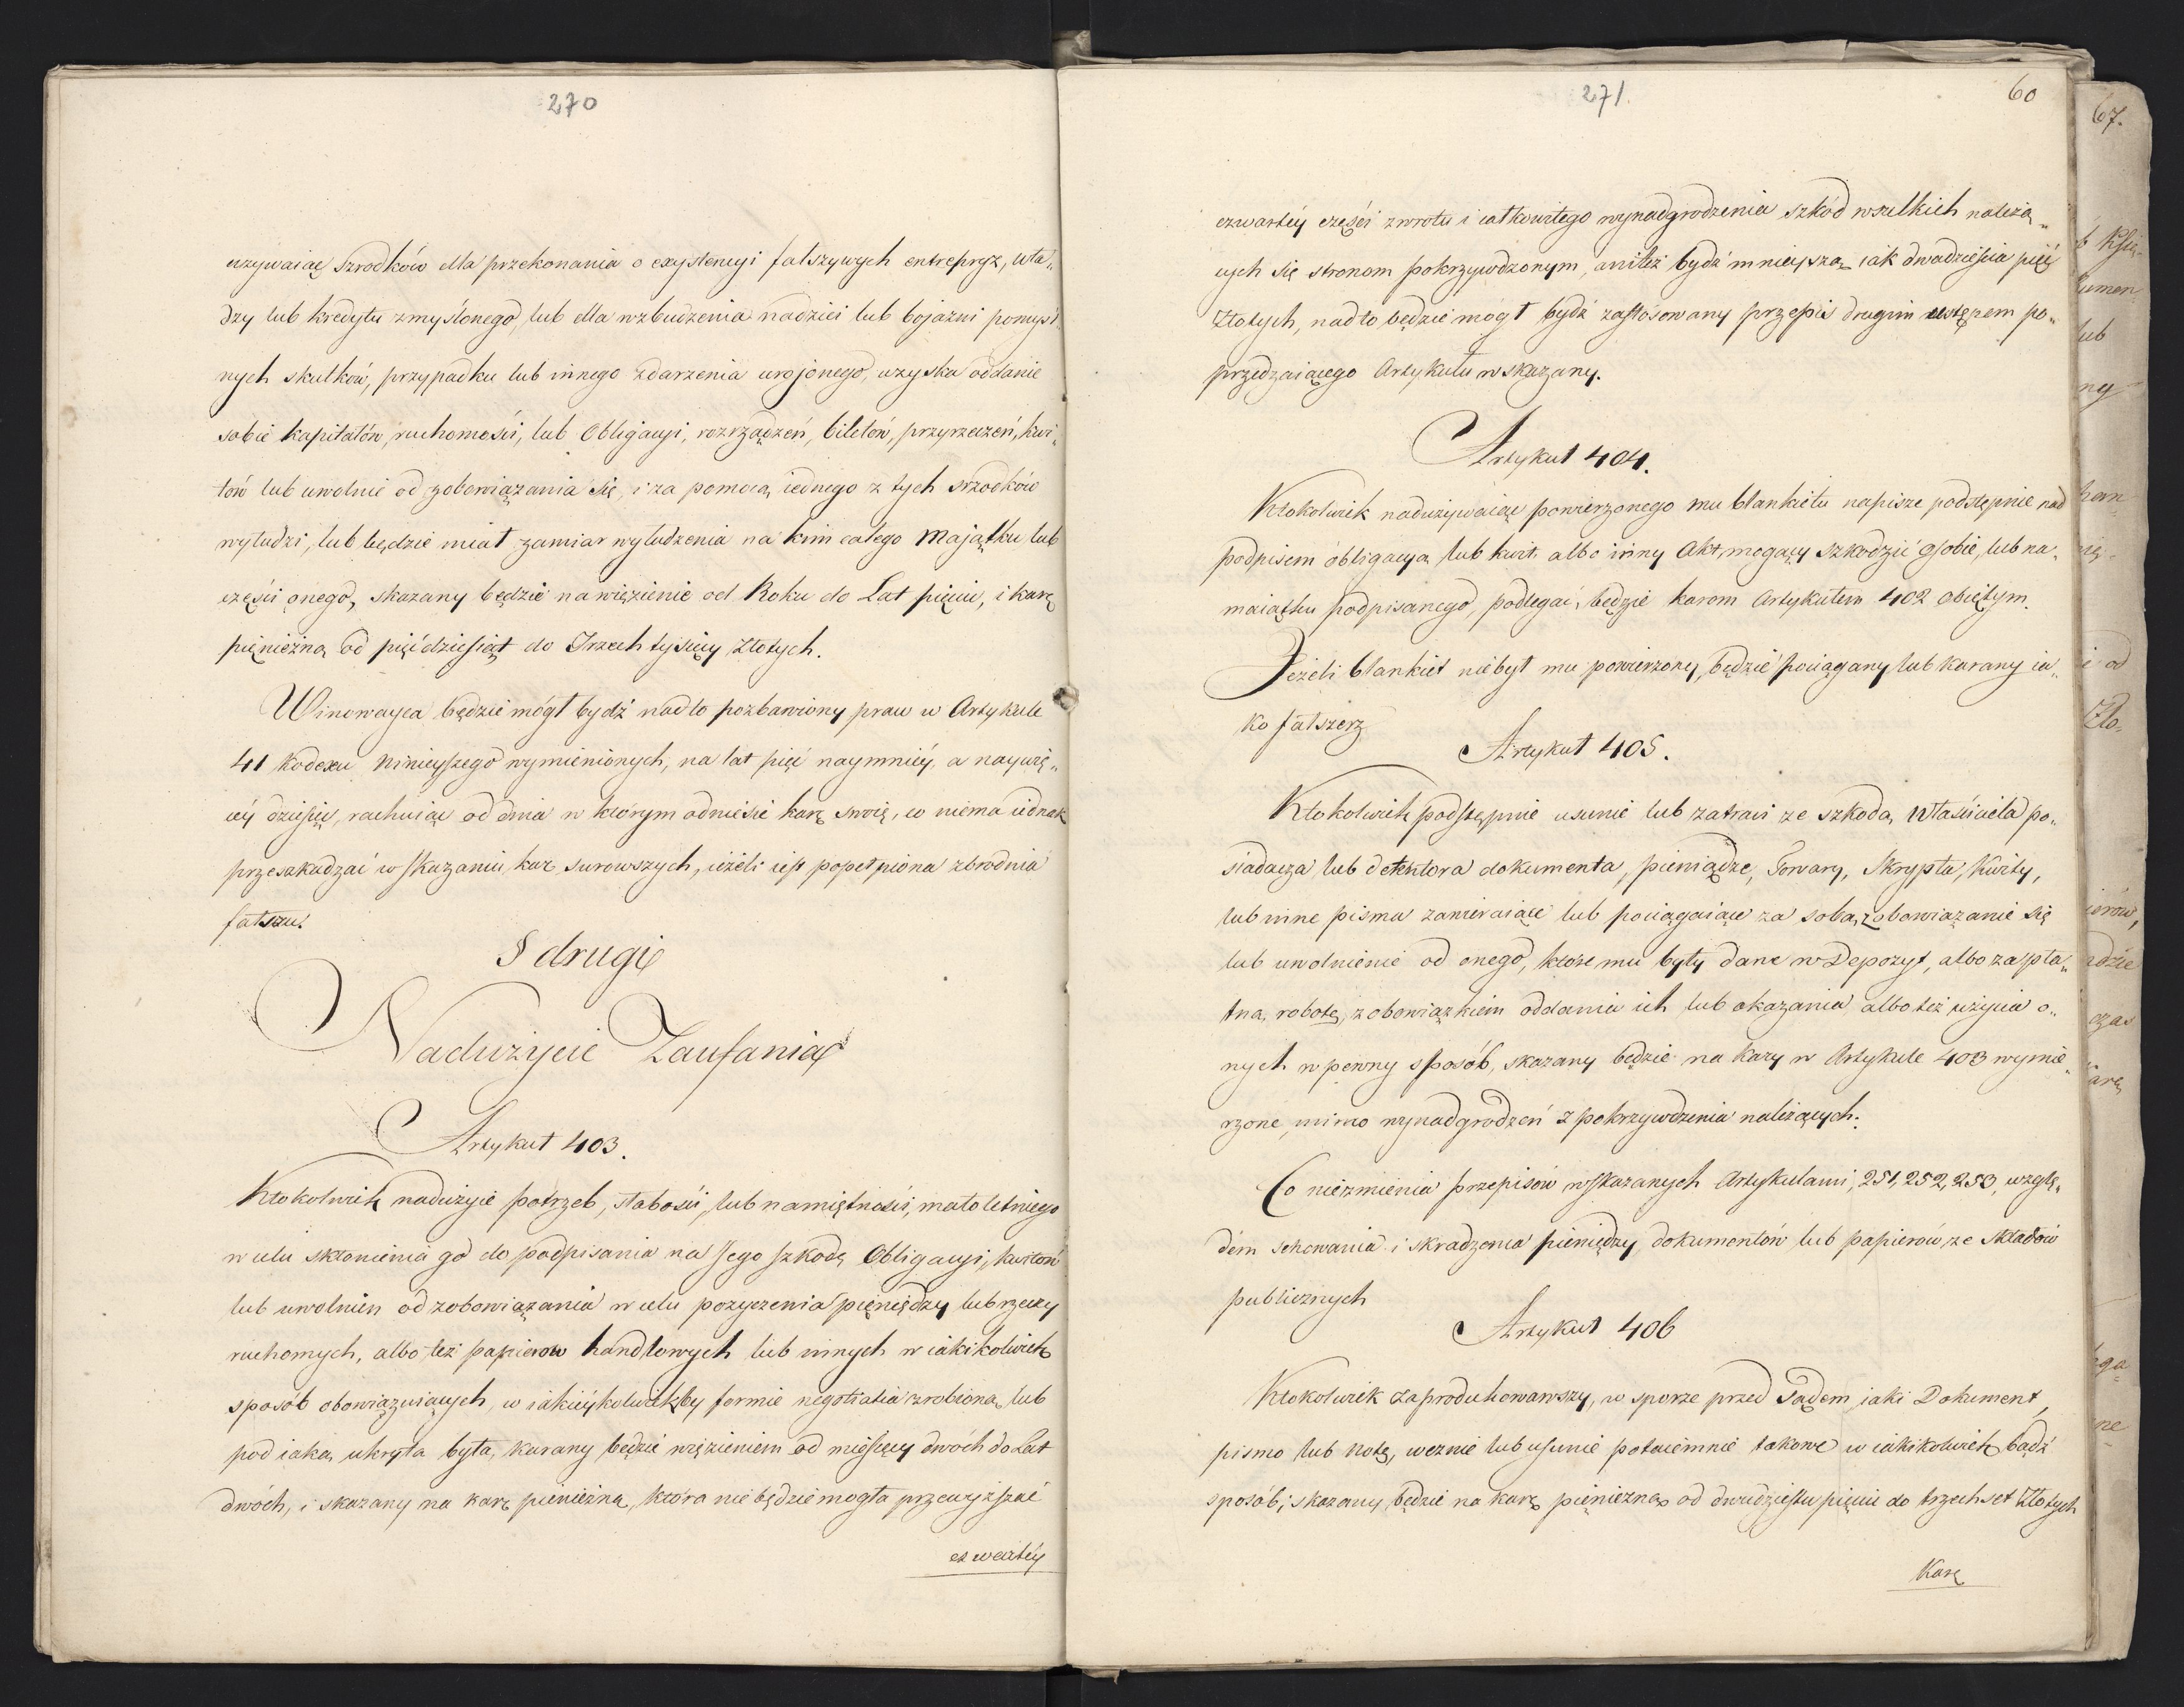 270
uzywaiąc Szrodków dla przekonania o exystencyi fałszywych entrepryz, wła„
dzy lub kredytu zmyślonego, lub dla wzbudzenia nadziei lub bojaźni pomyśl
nych skutków, przypadku lub innego zdarzenia urojonego, uzyska oddanie
sobie kapitałów, ruchomości, lub Obligacyi, rozrządzeń, biletów, przyrzeczeń, kwi„
tów lub uwolnie od zobowiązania się, i za pomocą iednego z tych srzodków
wyłudzi, lub będzie miał zamiar wyłudzenia na kim całego Majątku lub
części onego, skazany będzie na więzienie od Roku do Lat pięciu, i karę
pieniężną od pięćdziesiąt do Trzech tysięcy Złotych.
Winowayca będzie mógł bydź nadto pozbawiony praw w Artykule
41 Kodexu Ninieyszego wymienionych, na lat pięć naymniéy, a naywię„
céy dziesięć, rachuiąc od dnia w którym odniesie karę swoię, co niema iednak
przeszkadzać w skazaniu kar surowszych, ieżeli iest popełniona zbrodnia
fałszu.
§ drugi
Nadużycie Zaufania
Artykuł 403.
Ktokolwiek nadużyie potrzeb, słabości, lub namiętności, małoletniego
w celu skłonienia go do podpisania na Jego szkodę Obligacyi, kwitów
lub uwolnień od zobowiązania w celu pozyczenia pieniędzy lub rzeczy
ruchomych, albo też papierow handlowych lub innych w iakikolwiek
sposób obowiązuiących, w iakiéykolwiekby formie negotiatia zrobioną lub
pod iaką ukryta była, karany będzie więzieniem od miesięcy dwóch do Lat
dwóch, i skazany na karę pieniężną, która nie będzie mogła przewyższać
czwartéy
271.
60
czwartéy części zwrotu i całkowitego wynadgrodzenia szkód wszelkich należą„
cych się stronom pokrzywdzonym, anileż bydź mnieyszą iak dwadzieścia pięć
Złotych, nadto będzie mógł bydź zastósowany przepis drugim wstępem po„
przedzaiącego Artykułu wskazany.
Artykuł 404.
Ktokolwiek nadużywaiąc powierzonego mu blankietu napisze podstępnie nad
podpisem obligacyą lub kwit. albo inny Akt, mogący szkodzić osobie, lub na„
maiątku podpisanego, podlegać będzie karom Artykułem 402 obiętym.
Jeżeli blankiet niebył mu powierzony, będzie pociągany lub karany ia„
ko fałszerz
Artykuł 405.
Ktokolwiek podstępnie usunie lub zatraci ze szkodą Właściciela po„
siadacza lub detentora dokumenta, pieniądze, Towary, Skrypta, Kwity,
lub inne pisma zawieraiące lub pociągaiące za sobą zobowiązanie się
lub uwolnienie od onego, które mu były dane w Depozyt, albo za pła„
tną robotę, z obowiązkiem oddania ich lub okazania albo też użycia o„
nych w pewny sposób, skazany będzie na kary w Artykule 403 wymie„
rzone, mimo wynadgrodzeń z pokrzywdzenia należących.
Co niezmienia przepisów wskazanych Artykułami, 251, 252, 253, wzglę„
dem schowania i skradzenia pieniędzy dokumentów lub papierów, ze składów
publicznych
Artykuł 406
Ktokolwiek zaprodukowawszy, w sporze przed Sądem iaki Dokument,
pismo lub notę, weznie lub usunie potaiémnie takowe w iakikolwiek bądź
sposób, skazany będzie na karę pieniężną od dwudziestu pięciu do trzechset Złotych
Karę
67.